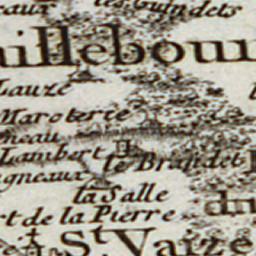 eaux
les Guindets
aillebour
Lauzé
Maroterie
neau
Lambert
le Brandet
gneaux
la Salle
rt de la Pierre
du
St Vaize